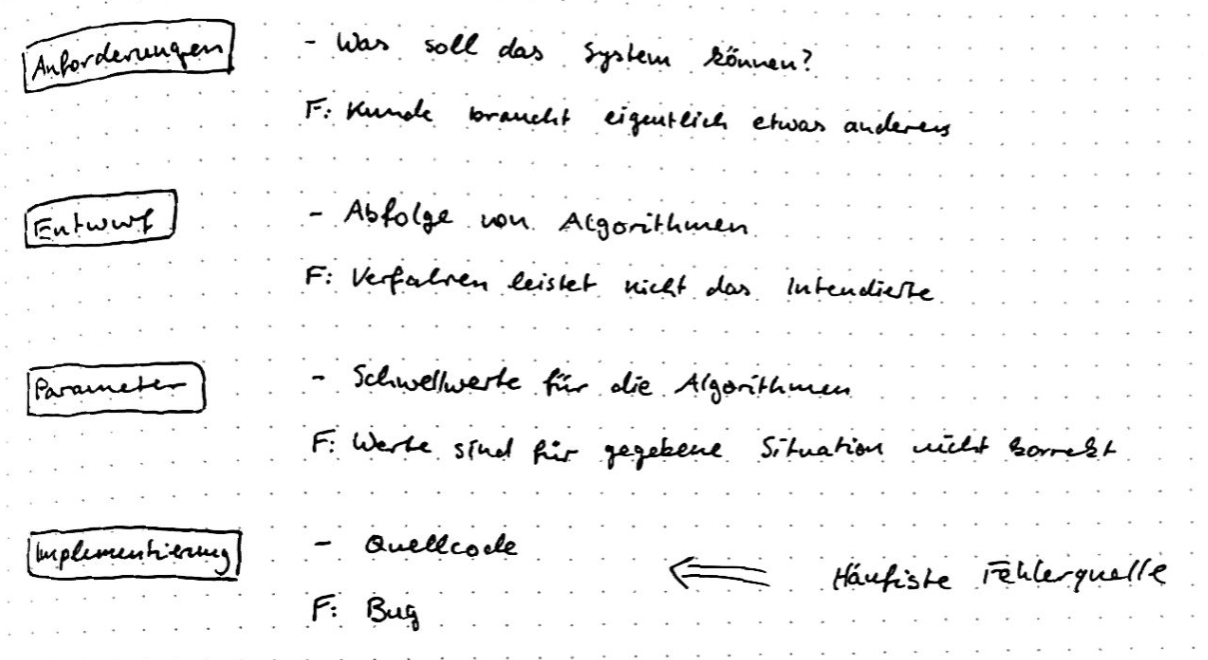 Anforderungen - Was soll das System können?
F: Kunde braucht eigentlich etwas anderes
Entwurf - Abfolge von Algorithmen
F: Verfahren leistet nicht das Intendierte
Parameter - Schwellwerte für die Algorithmen
F: Werte sind für gegebene Situation nicht korrekt
Implementierung - Quellcode
⇐ Häufiste Fehlerquelle
F: Bug